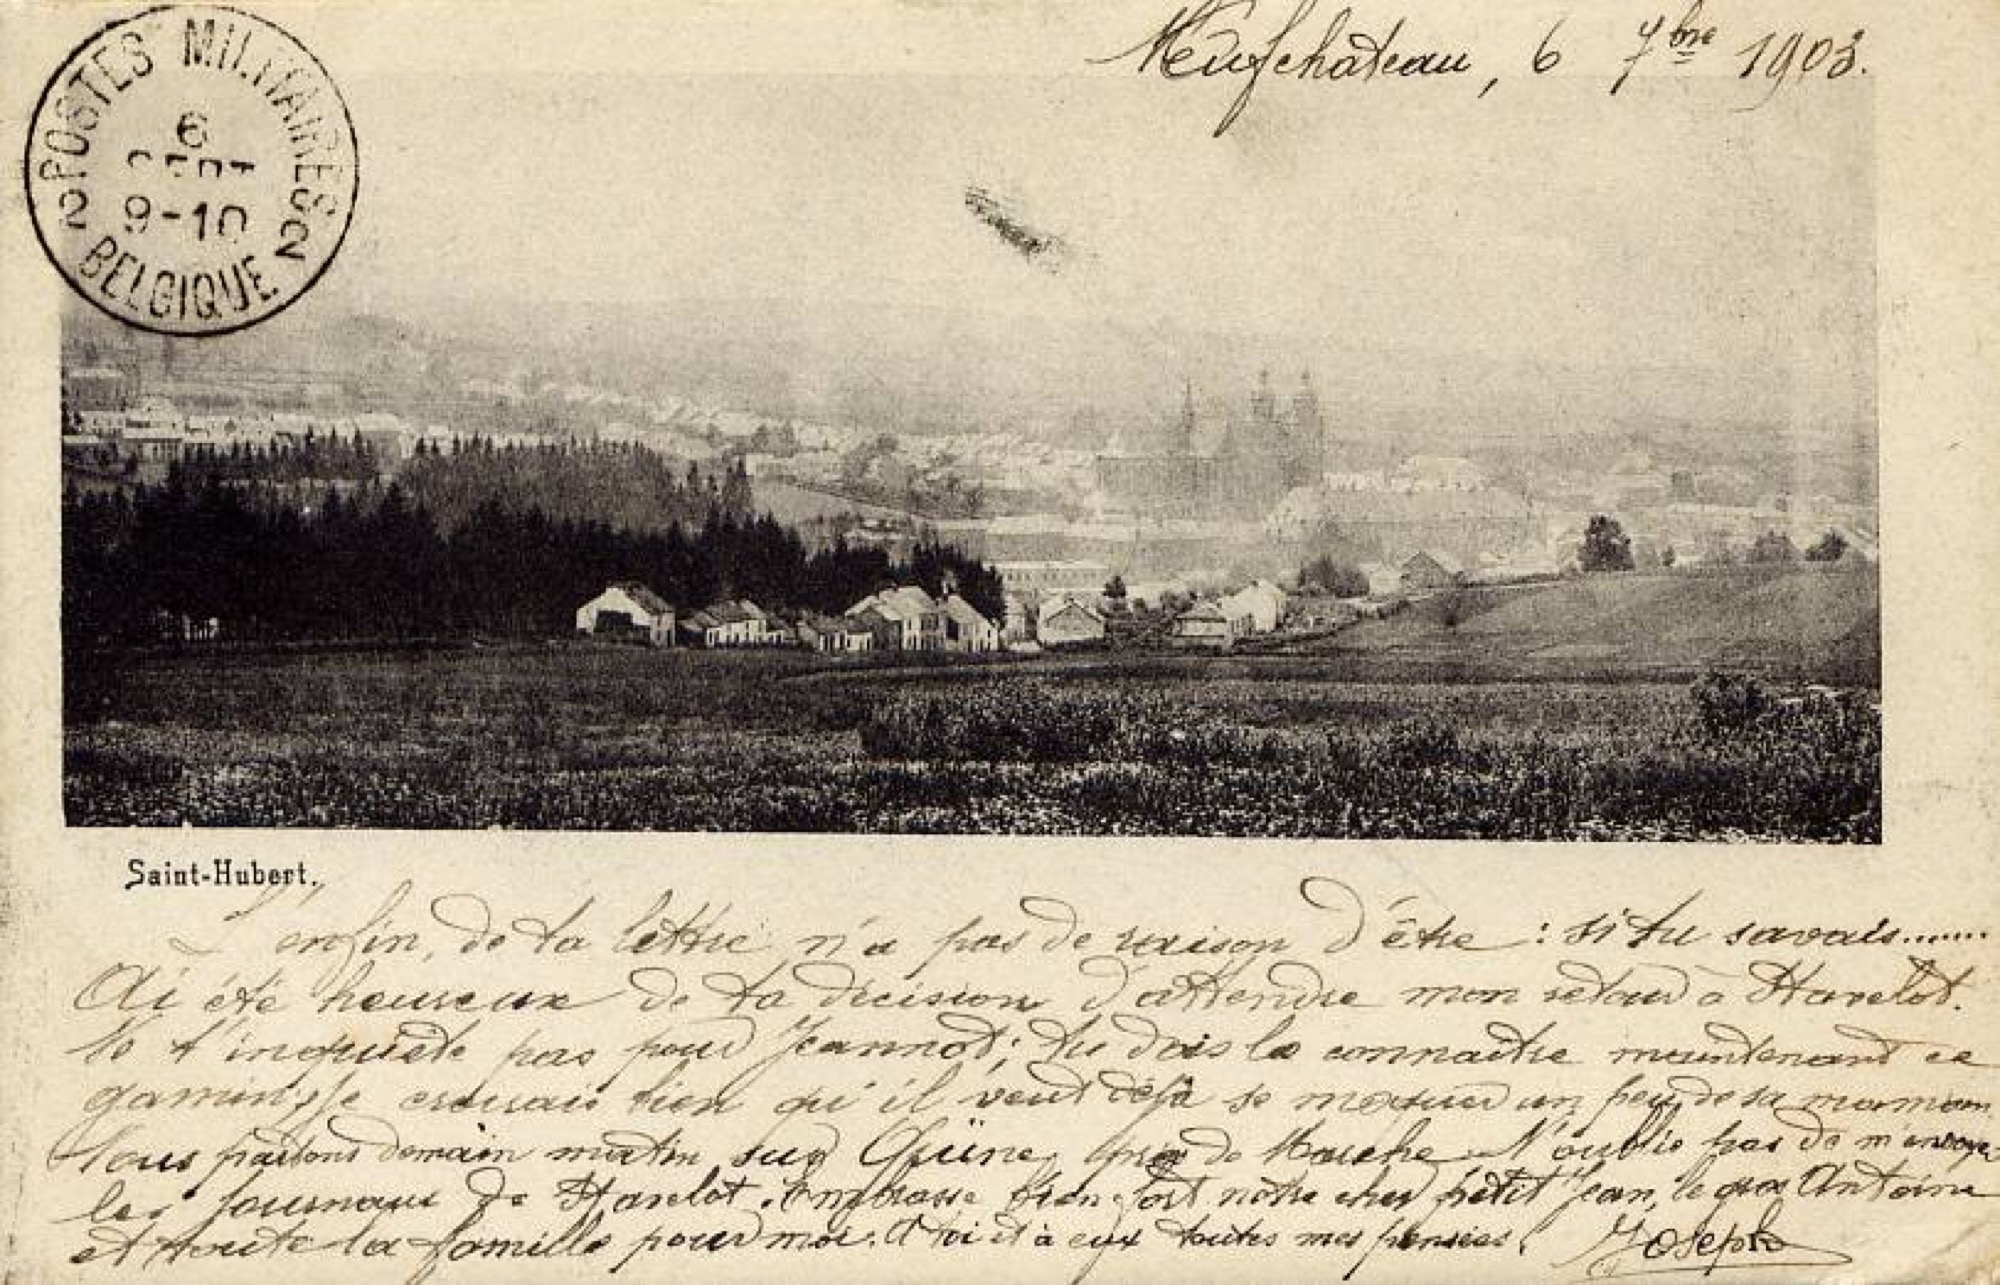 Neufchâteau, 6 7bre 1903.
POSTES MILITAIRES
6
SEPT
9-10
2 2
BELGIQUE
Saint-Hubert.
L'enfin, de ta lettre n'a pas de raison d'être : si tu savais.......
Ai été heureux de ta décision d'attendre mon retour à Havelot.
Ne t'inquiète pas pour Jeannot; tu dois le connaître maintenant ce
gamin; je croirais bien qu'il veut déjà se moquer un peu de sa maman
Nous partons demain matin sur près de Marche. N'oublie pas de m'envoyer
les journaux de Havelot. Embrasse bien fort notre cher petit Jean, le gros Antoine
et toute la famille pour moi. A toi et à eux toutes mes pensées. Joseph